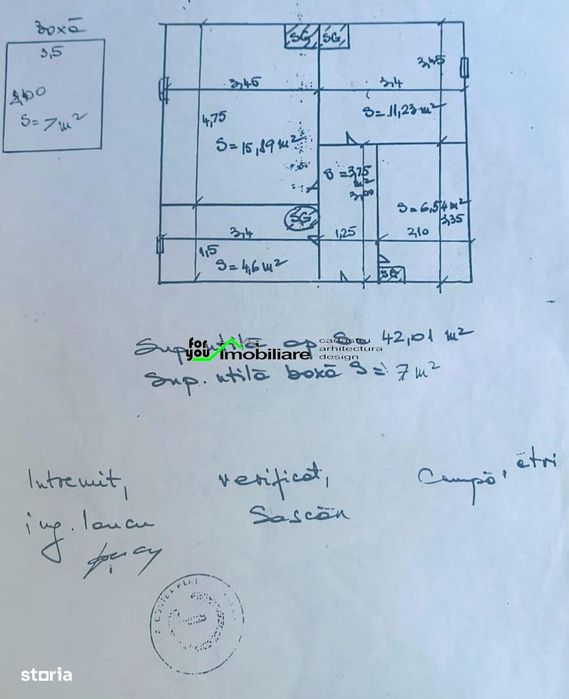 Boxă
3,5
2,00
S=7m²
SG SG
3,45
3,4
3,45
4,75
S=11,23m²
S=15,89m²
S=3,75
m²
3,00
S=6,54m²
3,35
SG
3,4
1,25
2,10
1,5
S=4,6m²
SG
Sup. utilă ap S= 42,01 m²
for you imobiliare
cadastru
arhitectura
design
Sup. utilă boxă S= 7m²
Intocmit, verificat,
ing. Iancu
storia